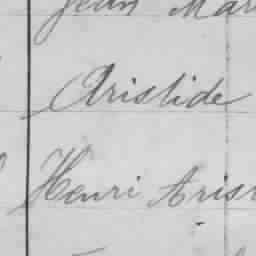 Jean Mar
Aristide
Henri Aris